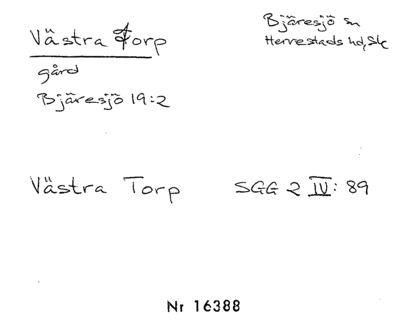 Västra Torp
Bjäresjö sn
Herrestads hd, Sk
gård
Bjäresjö 19:2
Västra Torp SGG 2 IV: 89
Nr 16388